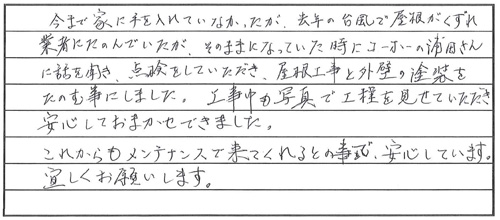 今まで家に手を入れていなかったが、去年の台風で屋根がくずれ
業者にたのんでいたが、そのままになっていた時にコーホーの浦田さん
に話を聞き、点検をしていただき、屋根工事と外壁の塗装を
たのむ事にしました。工事中も写真で工程を見せていただき
安心しておまかせできました。
これからもメンテナンスで来てくれるとの事で、安心しています。
宜しくお願いします。